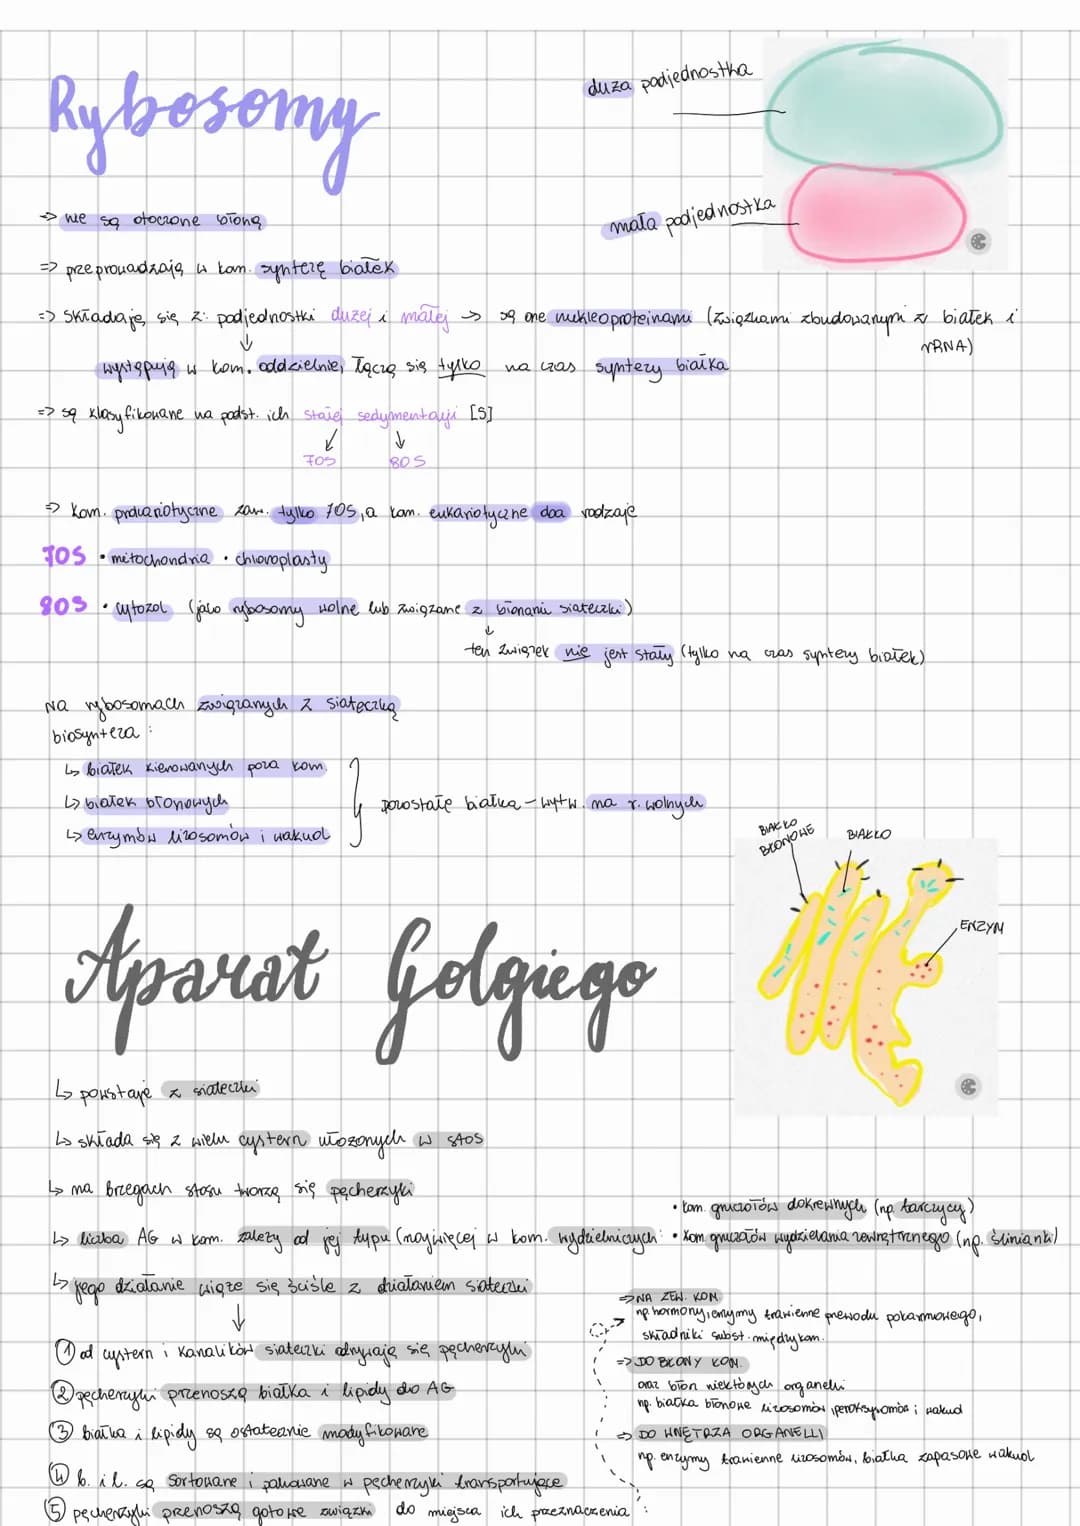 Rybosomy
duża podjednostka
mała podjednostka
=> nie są otoczone błoną
=> przeprowadzają w kom. syntezę białek
=> składają się z: podjednostki dużej i małej -> są one nukleoproteinami (związkami zbudowanymi z białek i rRNA)
↓
występują w kom. oddzielnie, łączą się tylko na czas syntezy białka
=> są klasyfikowane na podst. ich stałej sedymentacji [S]
↙ ↓
70S 80S
=> kom. prokariotyczne zaw. tylko 70S, a kom. eukariotyczne dwa rodzaje
70S • mitochondria • chloroplasty
80S • cytozol (jako rybosomy wolne lub związane z błonami siateczki)
↓
ten związek nie jest stały (tylko na czas syntezy białek)
Na rybosomach związanych z siateczką
biosynteza:
↳ białek kierowanych poza kom.
↳ białek błonowych
↳ enzymów lizosomów i wakuol
pozostałe białka - wytw. na r. wolnych
BIAŁKO BŁONOWE
BIAŁKO
ENZYM
Aparat Golgiego
↳ powstaje z siateczki
↳ składa się z wielu cystern ułożonych w stos
↳ na brzegach stosu tworzą się pęcherzyki
↳ liczba AG w kom. zależy od jej typu (najwięcej w kom. wydzielniczych:
• kom. gruczołów dokrewnych (np. tarczycy)
• kom. gruczołów wydzielania zewnętrznego (np. ślinianki)
↳ jego działanie wiąże się ściśle z działaniem siateczki
↓
① od cystern i kanalików siateczki odrywają się pęcherzyki
② pęcherzyki przenoszą białka i lipidy do AG
③ białka i lipidy są ostatecznie modyfikowane
④ b. i l. są sortowane i pakowane w pęcherzyki transportujące
⑤ pęcherzyki przenoszą gotowe związki do miejsca ich przeznaczenia:
=> NA ZEW. KOM
np. hormony, enzymy trawienne przewodu pokarmowego,
składniki subst. międzykom.
=> DO BŁONY KOM.
oraz błon niektórych organelli
np. białka błonowe lizosomów, peroksysomów i wakuol
=> DO WNĘTRZA ORGANELLI
np. enzymy trawienne lizosomów, białka zapasowe wakuol